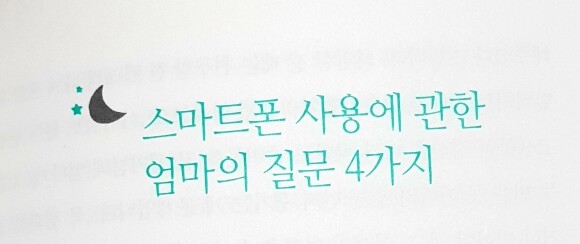 스마트폰 사용에 관한
엄마의 질문 4가지